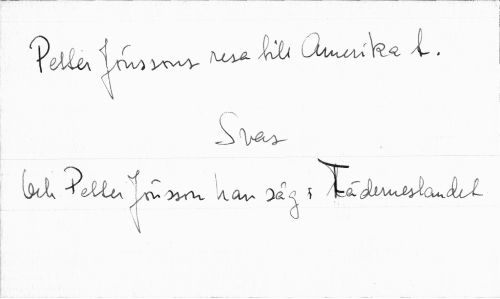 Petter Jönssons resa till Amerika t.
Svar
Och Petter Jönsson han såg i Fäderneslandet